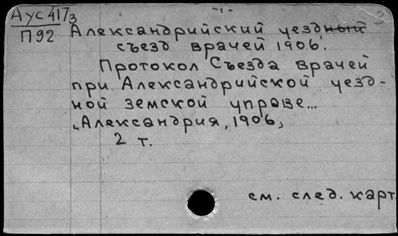 -1-
Аус417/3
П92
Александрийский уездный
съезд врачей 1906.
Протокол Съезда врачей
при Александрийской уезд-
ной земской управе...
„Александрия, 1906„
2 т.
см. след. карт